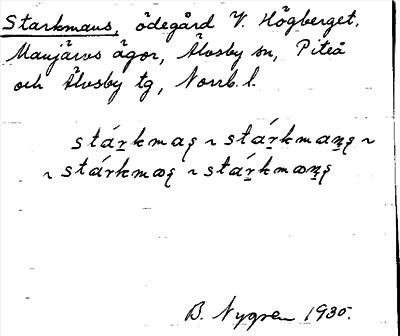 Starkmans, ödegård V. Högberget,
Manjärvs ägor, Älvsby sn, Piteå
och Älvsby tg, Norrb. l.
stár̲kmaş ~ stár̲kman̲ş ~
~ stárkmɷş ~ stár̲kmɷn̲ş
B. Nygren 1935.